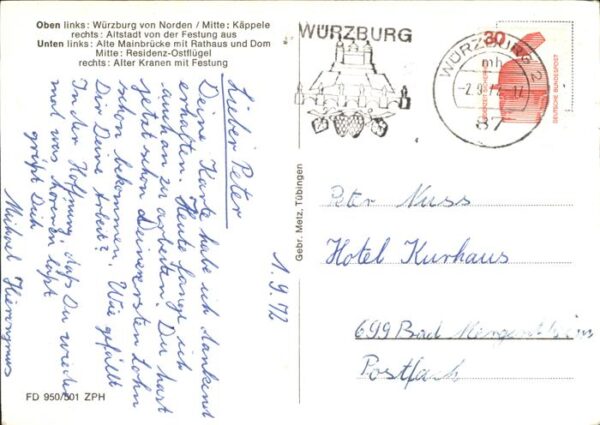 Oben links: Würzburg von Norden / Mitte: Käppele
rechts: Altstadt von der Festung aus
Unten links: Alte Mainbrücke mit Rathaus und Dom
Mitte: Residenz-Ostflügel
rechts: Alter Kranen mit Festung
Lieber Peter
Deine Karte habe ich dankend
erhalten. Heute fange ich
auch an zu arbeiten. Du hast
jetzt schon Deinen ersten Lohn
schon bekommen. Wie gefällt
Dir Deine Arbeit?
In der Hoffnung, daß Du wieder
mal was hören läßt
grüßt Dich
Michael Hieronymus
1.9.72
FD 950/501 ZPH
Gebr. Metz, Tübingen
WÜRZBURG
WÜRZBURG 2
mh
-2.9.72-17
87
30
DEUTSCHE BUNDESPOST
Peter Nuss
Hotel Kurhaus
699 Bad Mergentheim
Postfach